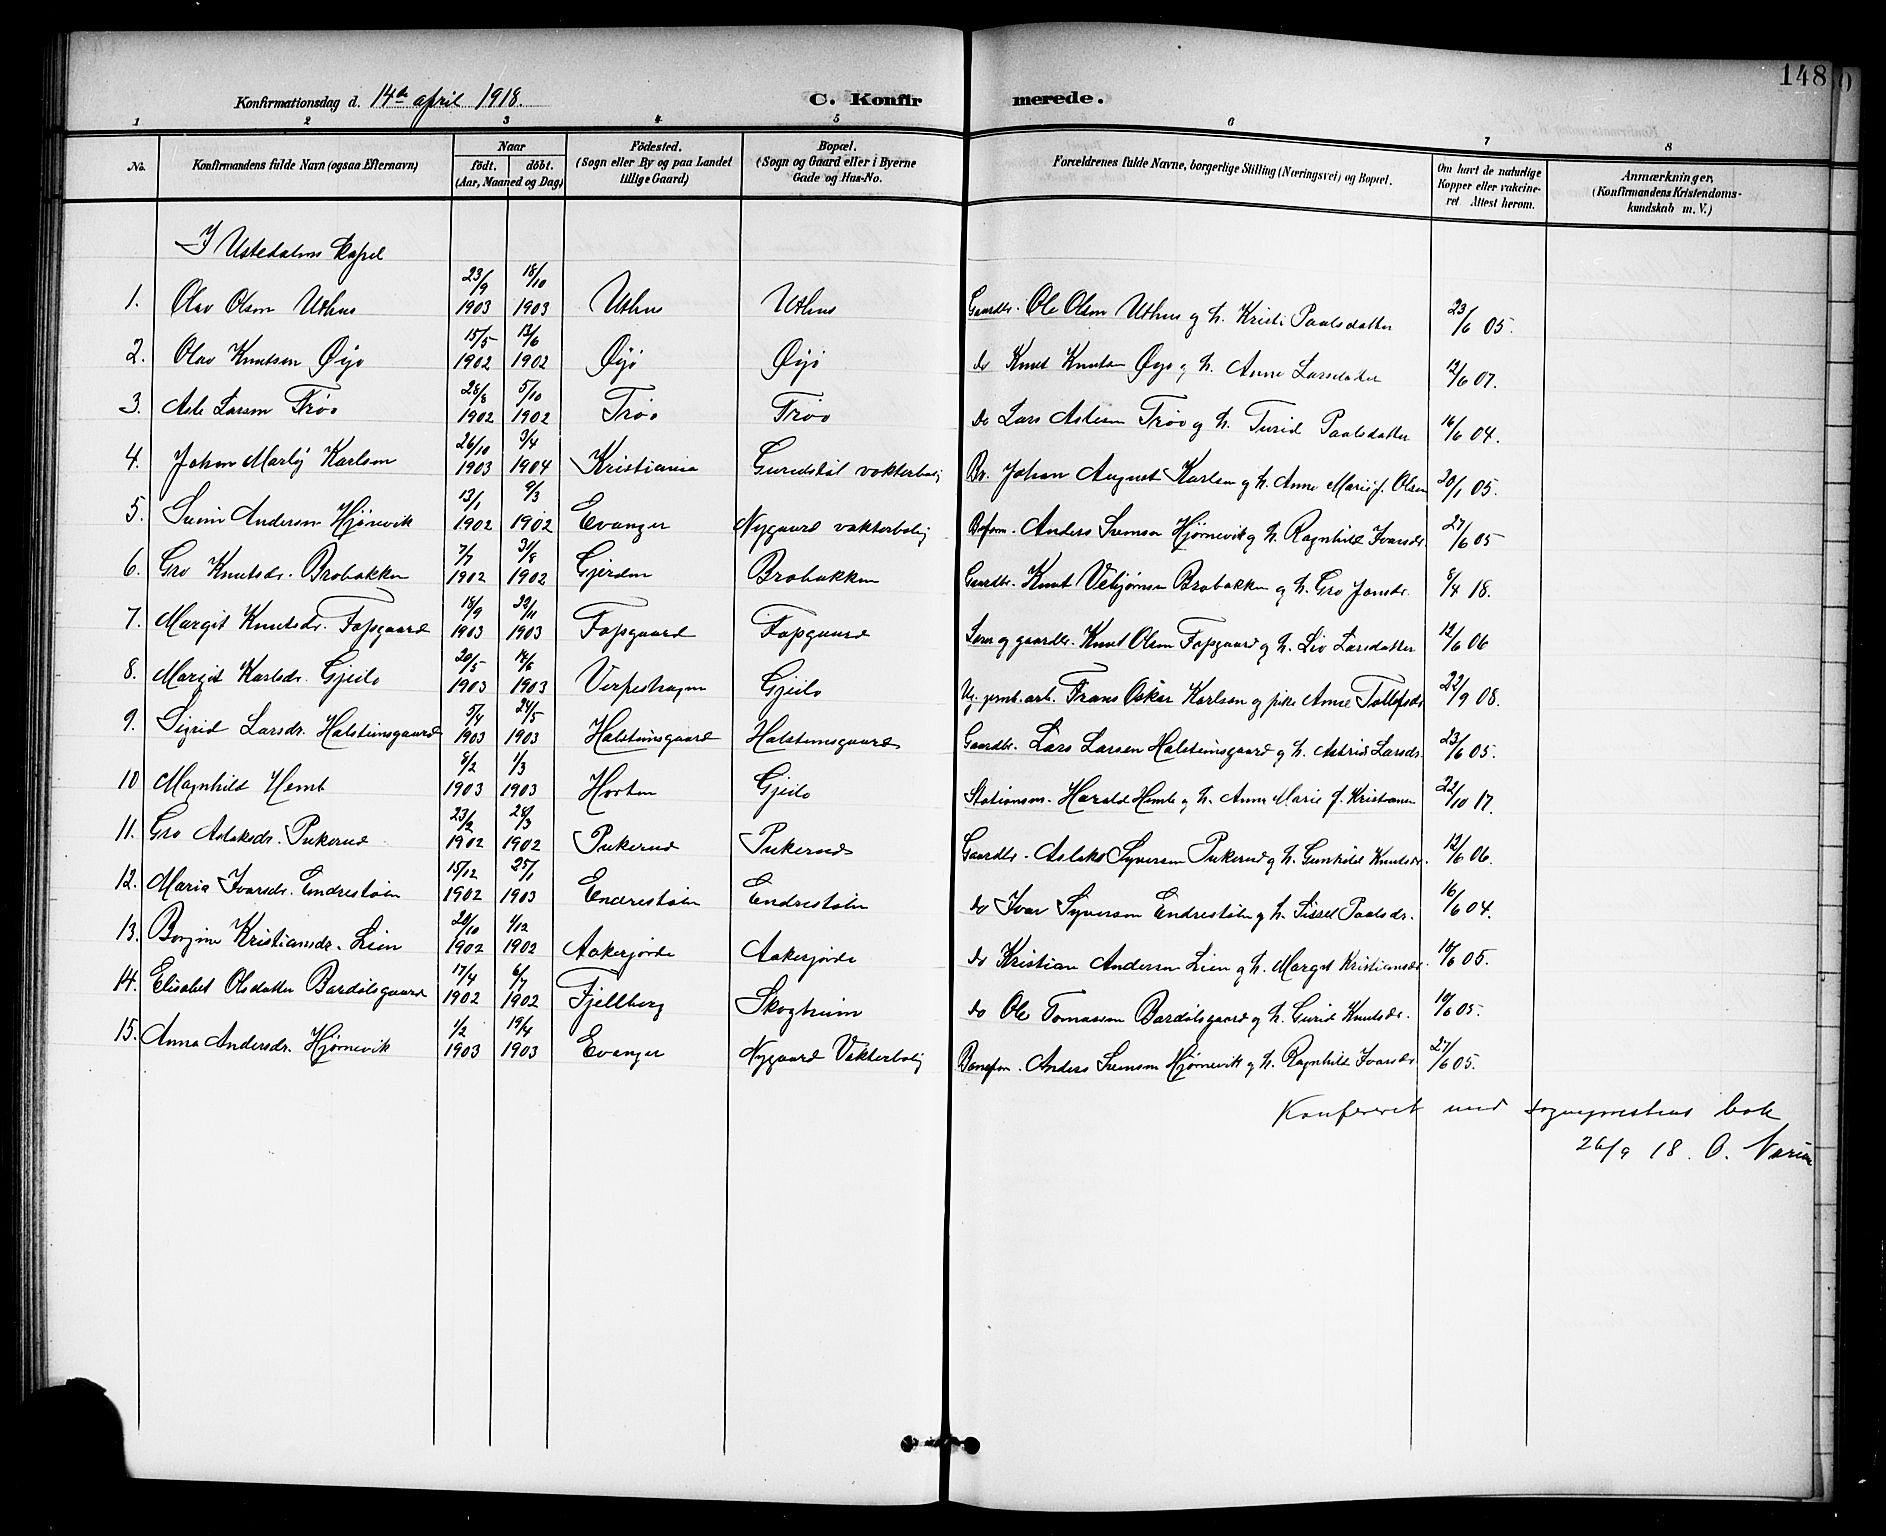 148
Konfirmationsdag d. 14de april 1918. C. Konfirmerede.
1 2 3 4 5 6 7 8
No. Konfirmandens fulde Navn (ogsaa Efternavn) Naar født. døbt. (Aar, Maaned og Dag) Fødested. (Sogn eller By og paa Landet tillige Gaard) Bopæl. (Sogn og Gaard eller i Byerne Gade og Hus-No. Forældrenes fulde Navne, borgerlige Stilling (Næringsvei) og Bopæl. Om havt de naturlige Kopper eller vakcineret. Attest herom. Anmærkninger. (Konfirmandens Kristendomskundskab m. V.)
I Ustedalens kapel
1. Olav Olsen Uthus 23/9 1903 18/10 1903 Uthus Uthus Gaardbr. Ole Olsen Uthus og h. Kristi Paalsdatter 23/6 05.
2. Olav Knutsen Øyo 15/5 1902 13/6 1902 Øyo Øyo do Knut Knutsen Øyo og h. Anne Larsdatter 12/6 07.
3. Asle Larsen Trøo 28/8 1902 5/10 1902 Trøo Trøo do Lars Aslesen Trøo og h. Turid Paalsdatter 16/6 04.
4. Johan Karlsen 26/10 1903 3/4 1904 Kristiania Guridstøl vokterbolig Johan August Karlsen og h. Anne Marie f. Olsen 20/1 05.
5. Andersen Hjørnevik 13/1 1902 9/3 1902 Evanger Nygaard vakterbolig Anders Hjørnevik og h. Ragnhild Ivarsdr. 27/6 05
6. Gro Knutsdr. Brobakken 7/7 1902 31/8 1902 Gjerden Brobakken Gaardbr. Knut Vebjørnsen Brobakken og h. Gro Jonsdr. 8/4 18.
7. Margit Knutsdr. Fopsgaard 18/9 1903 22/11 1903 Fopsgaard Fopsgaard og gaardbr. Knut Olsen Fopsgaard og h. Liv Larsdatter 12/6 06
8. Margit Karlsdr. Gjeilo 20/5 1903 14/6 1903 Verpeshagen Gjeilo Frans Oskar Karlson og pike Anne Tollefsdr 22/9 08.
9. Sigrid Larsdr. Halsteinsgaard 5/4 1903 24/5 1903 Halsteinsgaard Halsteinsgaard Gaardbr. Lars Larsen Halsteinsgaard og h. Astrid Larsdr. 23/6 05.
10 Magnhild Hemb 8/2 1903 1/3 1903 Horten Gjeilo Stationsm. Harald Hemb og h. Anna Marie f. Kristiansen 22/10 17.
11. Gro Aslaksdr. Pukerud 23/2 1902 28/3 1902 Pukerud Pukerud Gaardbr. Aslak Syversen Pukerud og h. Gunhild Knutsdr. 12/6 06.
12. Maria Ivarsdr. Endrestølen 15/12 1902 25/1 1903 Endrestølen Endrestølen do Ivar Syversen Endrestølen og h. Sissel Paalsdr. 16/6 04.
13. Kristiansdr. Lien 20/10 1902 4/12 1902 Aakerjorde Aakerjorde do Kristian Andersen Lien og h. Margit Kristiansdr. 10/6 05.
14. Elisabet Olsdatter Bardølsgaard 17/4 1902 6/7 1902 Fjellberg Skogheim do Ole Tomassen Bardølsgaard og h. Gurid Knutsdr. 10/6 05.
15. Anna Andersdr. Hjørnevik 1/2 1903 19/4 1903 Evanger Nygaard Vakterbolig Baneform. Anders Hjørnevik og h. Ragnhild Ivarsdr. 27/6 05.
Konfereret med sogneprestens bok
26/9 18. O.